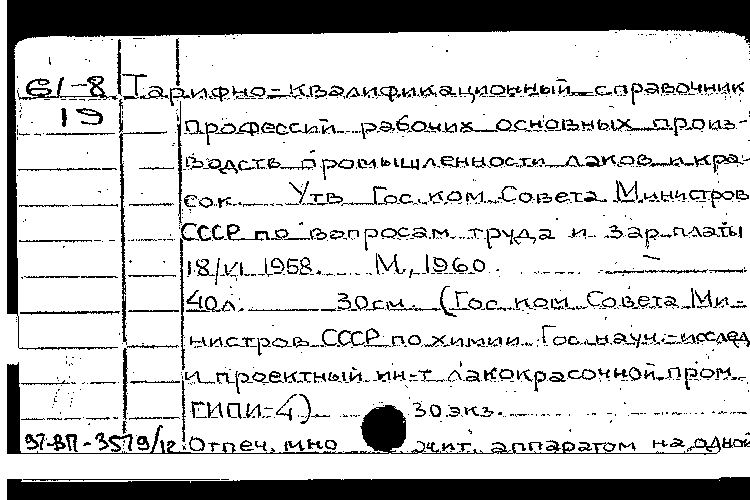 61-8 Тарифно-квалификационный справочник
19 профессий рабочих основных произ-
водств промышленности лаков и кра-
сок. Утв Гос. ком. Совета Министров
СССР по вопросам труда и зар. платы
18/VI 1958. М., 1960.
40л. 30см. (Гос. ком. Совета Ми-
нистров СССР по химии. Гос. науч.-исслед
и проектный ин-т лакокрасочной пром.
ГИПИ-4). 30 экз.
Отпеч. мно жит. аппаратом на одной